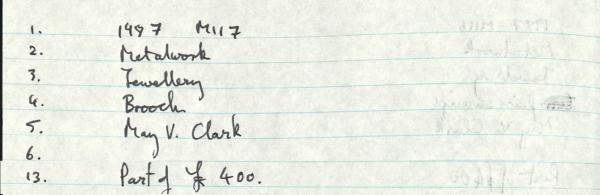 1. 1987 M117
2. Metalwork
3. Jewellery
4. Brooch
5. May V. Clark
6.
13. Part of £ 400.